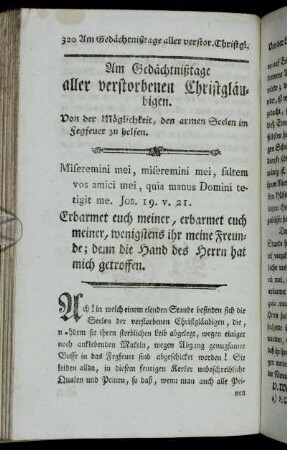 320 Am Gedächtnißtage aller verstor. Christgl.
Am Gedächtnißtage
aller verstorbenen Christgläu-
bigen.
Von der Möglichkeit, den armen Seelen im
Fegfeuer zu helfen.
Miseremini mei, miseremini mei, saltem
vos amici mei, quia manus Domini te-
tigit me. Jon. 19. v. 21.
Erbarmet euch meiner, erbarmet euch
meiner, wenigstens ihr meine Freun-
de; denn die Hand des Herrn hat
mich getroffen.
Ach! in welch einem elenden Stande befinden sich die
Seelen der verstorbenen Christgläubigen, die,
nachdem sie ihren sterblichen Leib abgelegt, wegen einiger
noch anklebenden Makeln, wegen Abgang genugsamer
Busse in das Fegfeuer sind abgeschicket worden! Sie
leiden allda, in diesem feurigen Kerker unbeschreibliche
Qualen und Peinen, so daß, wenn man auch alle Pei-
nen